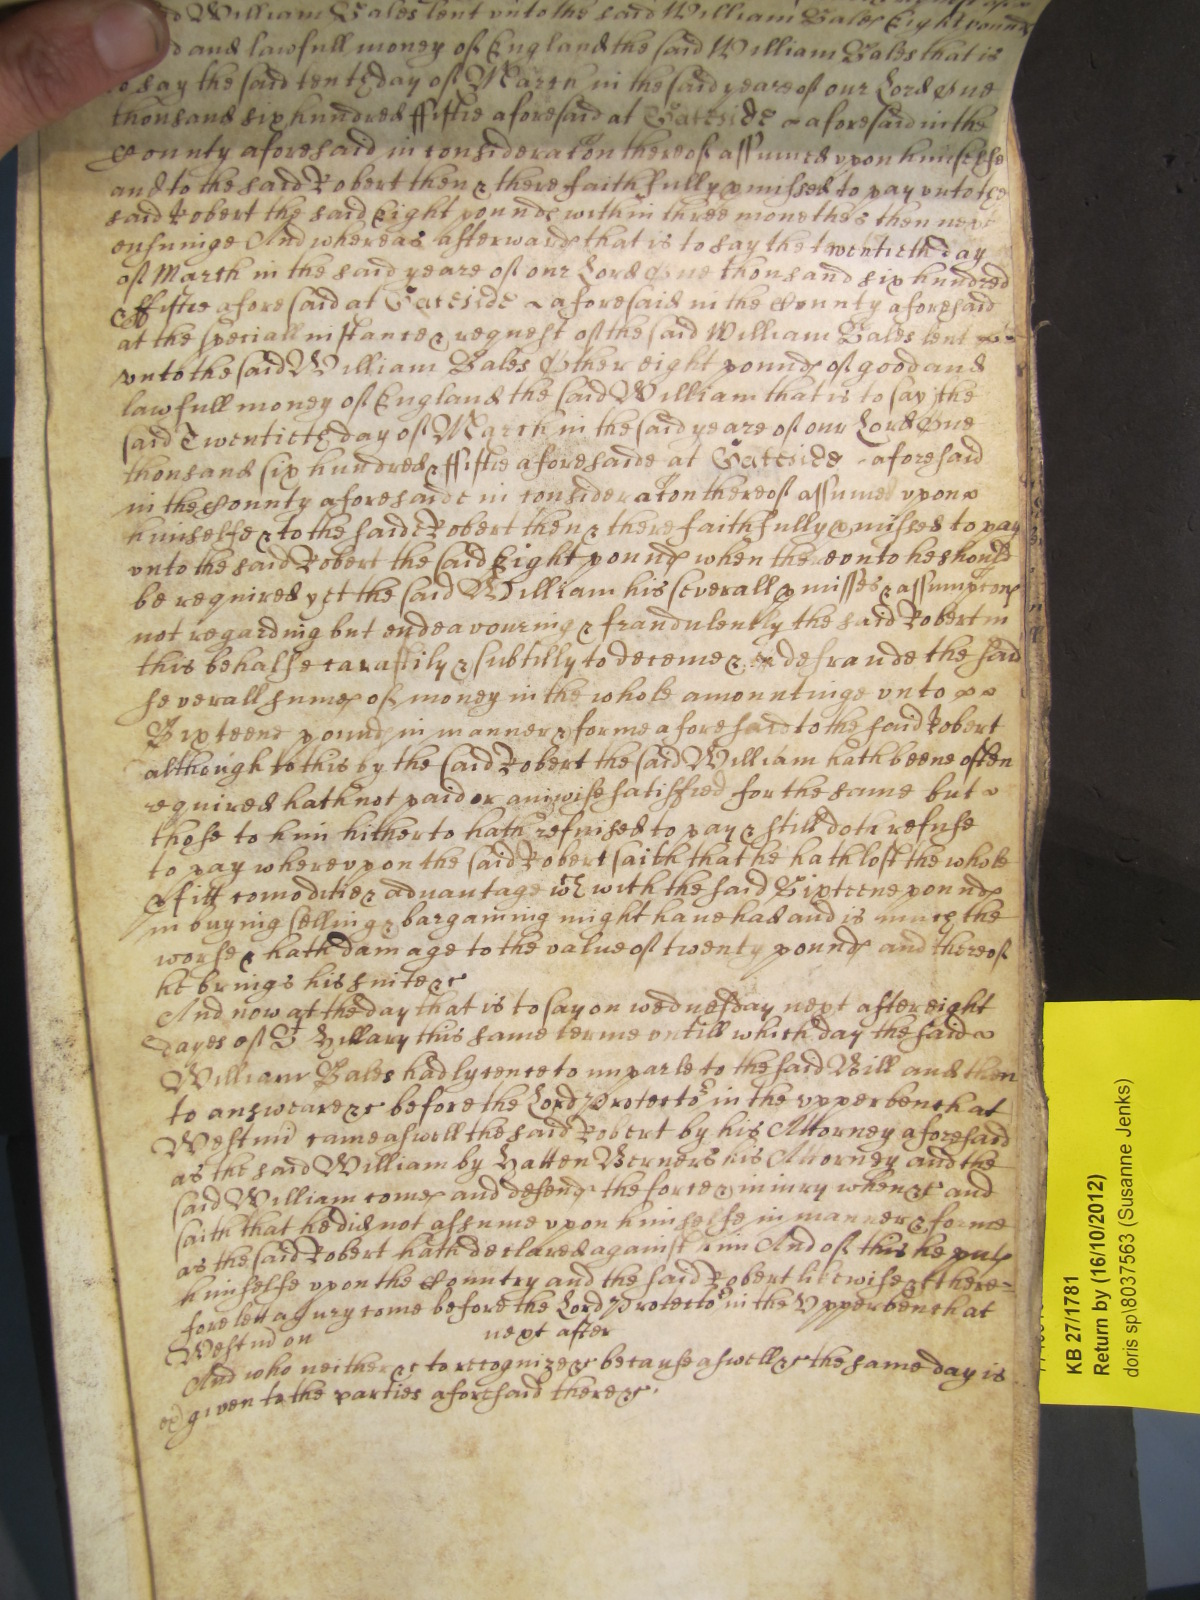 d William Bales lent vnto the said William Bales Eight pound
d and lawfull money of England the said William Bales that is
to say the said tenth day of March in the said yeare of our Lord One
thousand six hundred ffiftie aforesaid at Gateside aforesaid in the
County aforesaid in consideracon thereof assumed vpon himselfe
and to the said Robert then & there faithfully pmissed to pay vnto the
said Robert the said Eight pounds within three monethes then next
ensuinge And whereas afterwards that is to say the twentieth day
of March in the said yeare of our Lord One thousand six hundred
& ffiftie aforesaid at Gateside aforesaid in the County aforesaid
at the speciall instance & request of the said William Bales lent
vnto the said William Bales Other eight pounds of good and
lawfull money of England the said William that is to say the
said Twentieth day of March in the said yeare of our Lord One
thousand six hundred & ffiftie aforesaide at Gateside aforesaid
in the County aforesaide in consideracon thereof assumed vpon
himselfe & to the saide Robert then & there faithfully pmissed to pay
vnto the said Robert the said Eight pounds when therevnto he should
be required yet the said William his severall pmisses & assumptons
not regarding but endeavouring & fraudulently the said Robert in
this behalfe craftily & subtilly to deceive & defraude the said
severall sumes of money in the whole amountinge vnto
Sixteene pounds in manner & forme aforesaid to the said Robert
although to this by the said Robert the said William hath beene often
required hath not paid or aniwise satisfied for the same but
those to him hitherto hath refused to pay & still doth refuse
to pay wherevpon the said Robert saith that he hath lost the whole
pfitt comoditie & aduantage wch with the said Sixteene pounds
in buying selling & bargaining might haue had and is much the
worse & hath damage to the value of twenty pounds and thereof
he brings his suite &c
And now at the day that is to say on wednesday next after eight
dayes of St Hillary this same terme vntill which day the said
William Bales had lycence to imparle to the said Bill and then
to answeare &c before the Lord Protector in the vpper bench at
Westmr came aswell the said Robert by his Attorney aforesaid
as the said William by Hatten Berners his Attorney and the
said William comes and defends the force & iniury when &c and
saith that he did not assume vpon himselfe in manner & forme
as the said Robert hath declared against him And of this he puts
himselfe vpon the Country and the said Robert likewise &c there=
fore lett a jury come before the Lord Protector in the Vpper bench at
Westm on next after
And who neither &c to recognize &c because aswell &c the same day is
given to the parties aforesaid there &c.
KB 27/1781
Return by (16/10/2012)
doris sp\8037563 (Susanne Jenks)